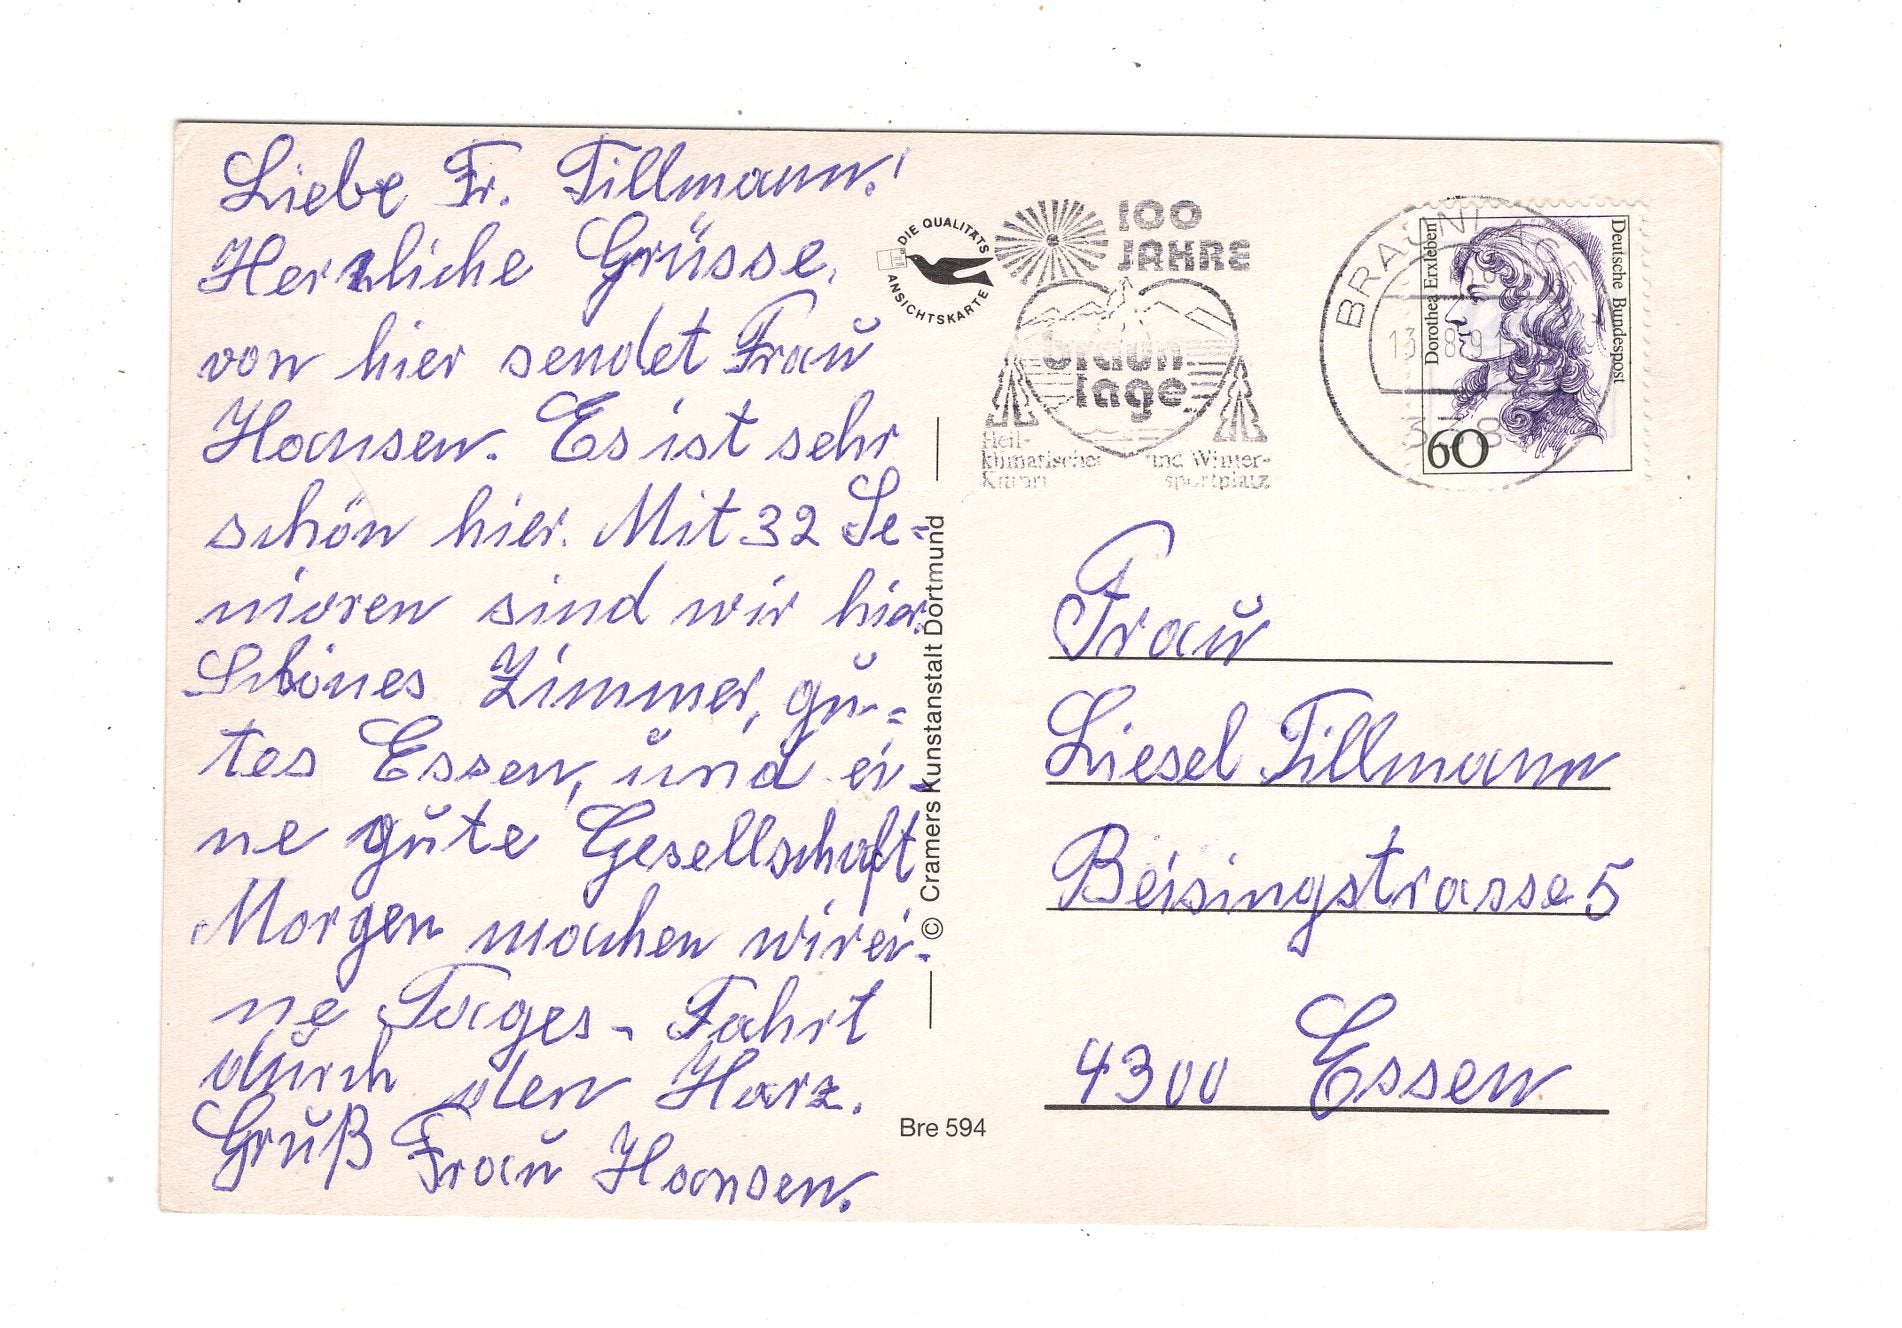 Liebe Fr. Tillmann!
Herzliche Grüsse,
von hier sendet Frau
Hansen. Es ist sehr
schön hier. Mit 32 Se-
nioren sind wir hier.
Schönes Zimmer, gu-
tes Essen, und ei-
ne gute Gesellschaft
Morgen machen wir ei-
ne Tages-Fahrt
durch den Harz.
Gruß Frau Hansen.
DIE QUALITÄTS
ANSICHTSKARTE
100
JAHRE
braun
lage
Heil-
klimatischer und Winter-
Kurort sportplatz
BRAUNLAGE
Dorothea Erxleben
Deutsche Bundespost
60
© Cramers Kunstanstalt Dortmund
Bre 594
Frau
Liesel Tillmann
Beisingstrasse 5
4300 Essen